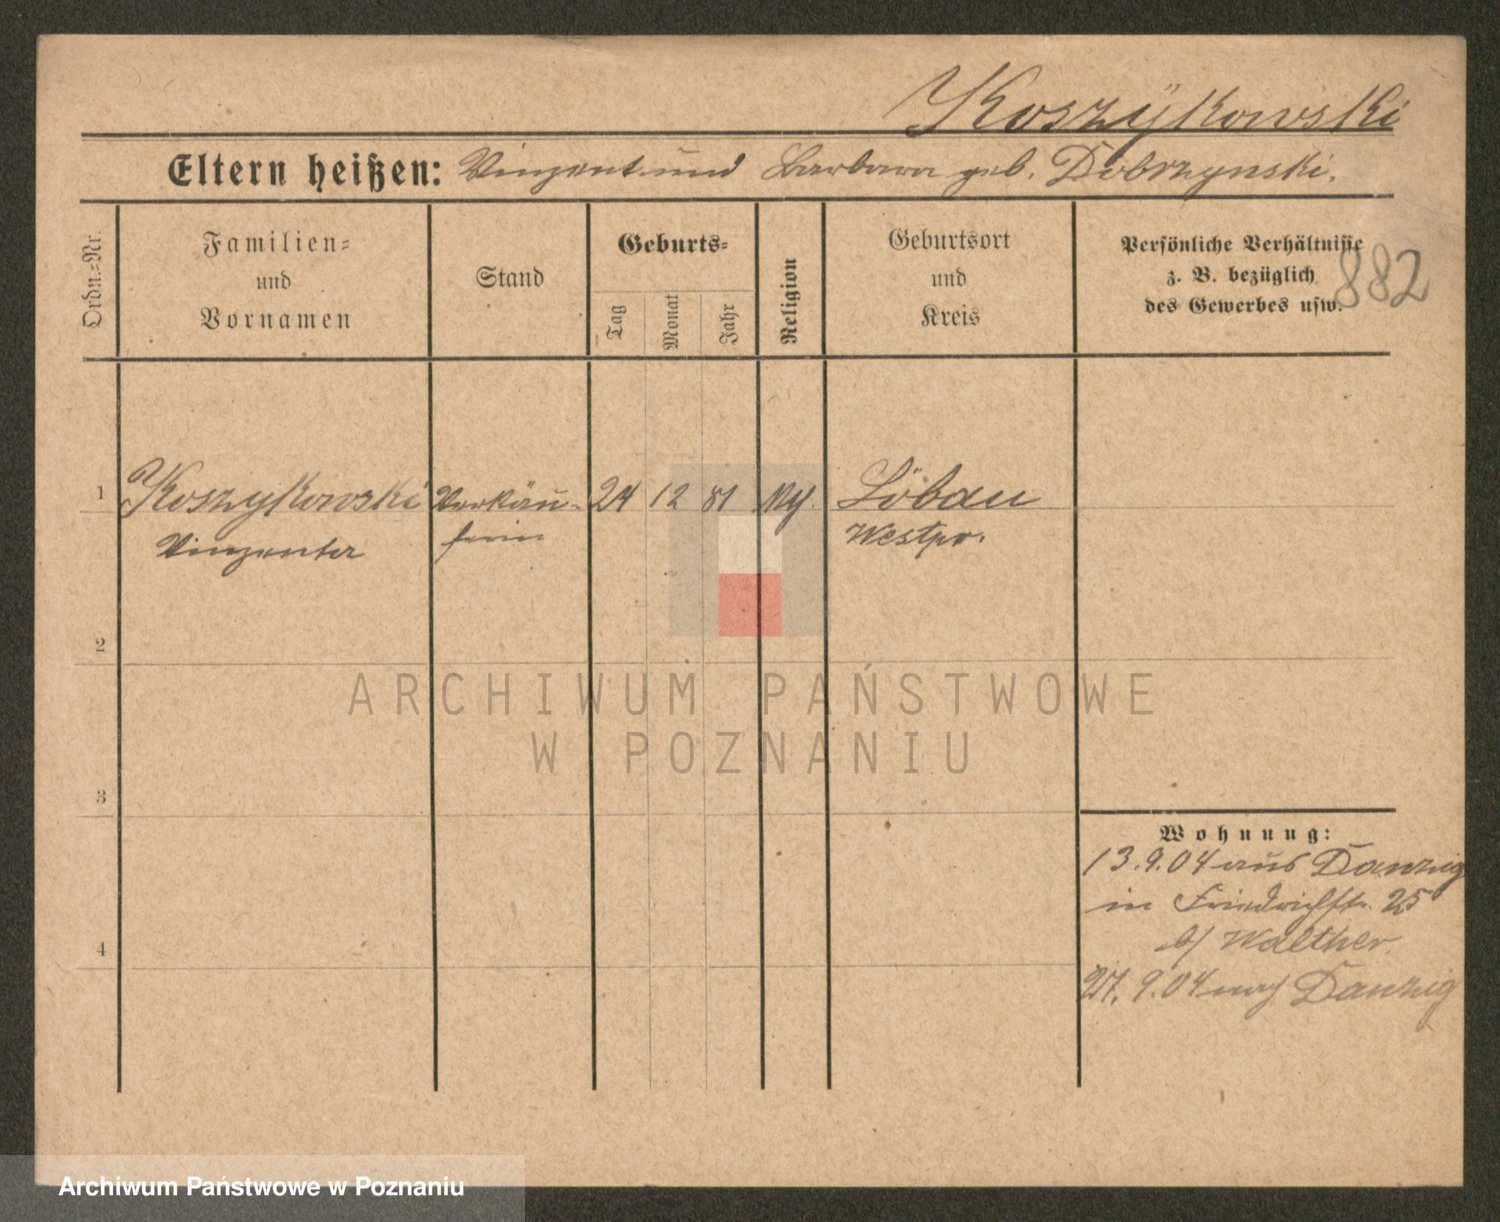 Koszÿkowski
Eltern heißen: Vinzent und Barbara geb. Dobrzynski.
Ordn.-Nr.
Familien-
und
Vornamen
Stand
Geburts-
Tag
Monat
Jahr
Religion
Geburtsort
und
Kreis
Persönliche Verhältnisse
z. B. bezüglich
des Gewerbes usw.
882
1 Koszykowski Verkäu- 24 12 81 Löbau
Vinzenta ferin Westpr.
2
ARCHIWUM PAŃSTWOWE
W POZNANIU
3
Wohnung:
13.9.04 aus Danzig
in Friedrichstr. 25
b/ Walther.
4
27.9.04 nach Danzig
Archiwum Państwowe w Poznaniu